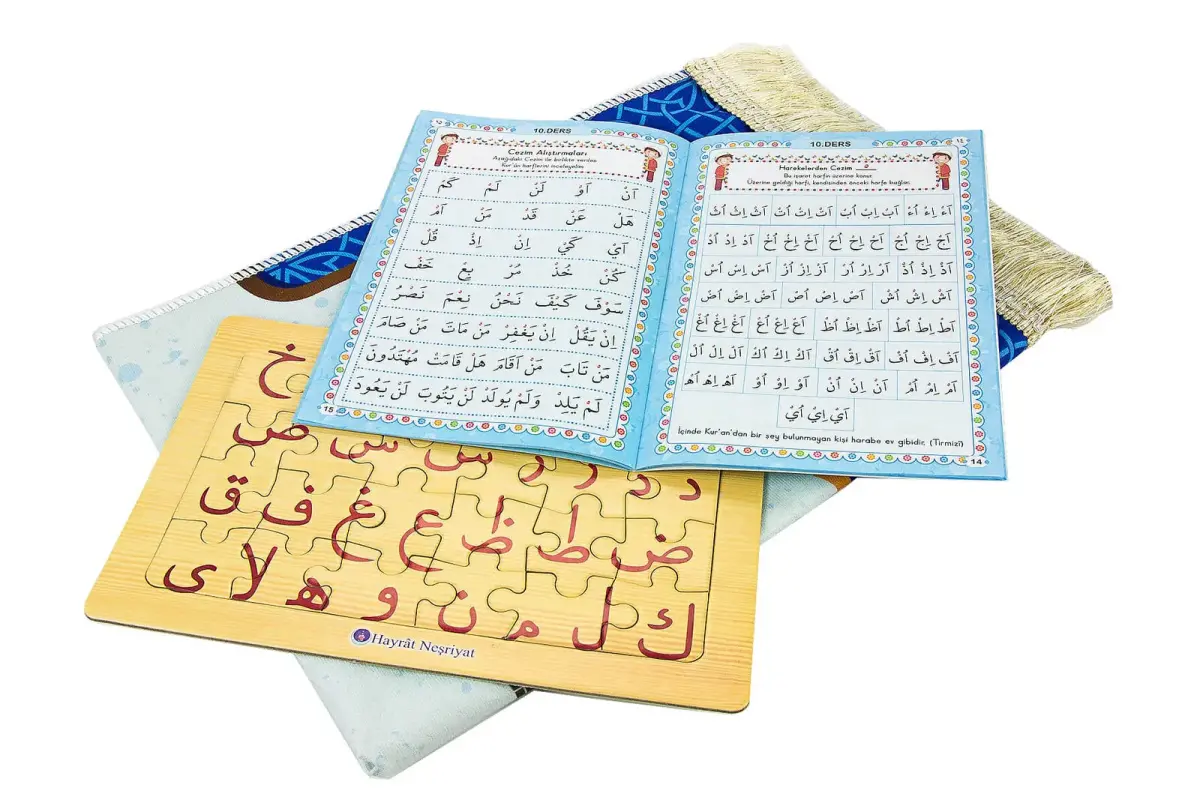 ١٤
10.DERS
Harekelerden Cezim ـْـ
Bu işaret harfin üzerine konur.
Üzerine geldiği harfi, kendisinden önceki harfe bağlar.
اَءْ اِءْ اُءْ اَبْ اِبْ اُبْ اَتْ اِتْ اُتْ اَثْ اِثْ اُثْ
اَجْ اِجْ اُجْ اَحْ اِحْ اُحْ اَخْ اِخْ اُخْ اَدْ اِدْ اُدْ
اَذْ اِذْ اُذْ اَرْ اِرْ اُرْ اَزْ اِزْ اُزْ اَسْ اِسْ اُسْ
اَشْ اِشْ اُشْ اَصْ اِصْ اُصْ اَضْ اِضْ اُضْ
اَطْ اِطْ اُطْ اَظْ اِظْ اُظْ اَعْ اِعْ اُعْ اَغْ اِغْ اُغْ
اَفْ اِفْ اُفْ اَقْ اِقْ اُقْ اَكْ اِكْ اُكْ اَلْ اِلْ اُلْ
اَمْ اِمْ اُمْ اَنْ اِنْ اُنْ اَوْ اِوْ اُوْ اَهْ اِهْ اُهْ
اَيْ اِيْ اُيْ
İçinde Kur'an'dan bir şey bulunmayan kişi harabe ev gibidir. (Tirmizî)
14
١٥
10.DERS
Cezim Alıştırmaları
Aşağıdaki Cezim ile birlikte verilen
Kur'ân harflerini inceleyelim
اَنْ اَوْ لَنْ لَمْ كَمْ
هَلْ عَنْ قَدْ مَنْ اَمْ
اَيْ كَيْ اِنْ اِذْ قُلْ
كُنْ خُذْ مُرْ بِعْ خَفْ
سَوْفَ كَيْفَ نَحْنُ نِعْمَ نَصْرُ
اِنْ يَقُلْ اِنْ يَغْفِرْ مَنْ مَاتَ مَنْ صَامَ
مَنْ تَابَ مَنْ اَقَامَ هَلْ قَامَتْ مُهْتَدُونَ
لَمْ يَلِدْ وَلَمْ يُولَدْ لَنْ يَتُوبَ لَنْ يَعُودَ
15
خ
د ذ ر ز س ش ص
ض ط ظ ع غ ف ق
ك ل م ن و ه لا ى
Hayrât Neşriyat